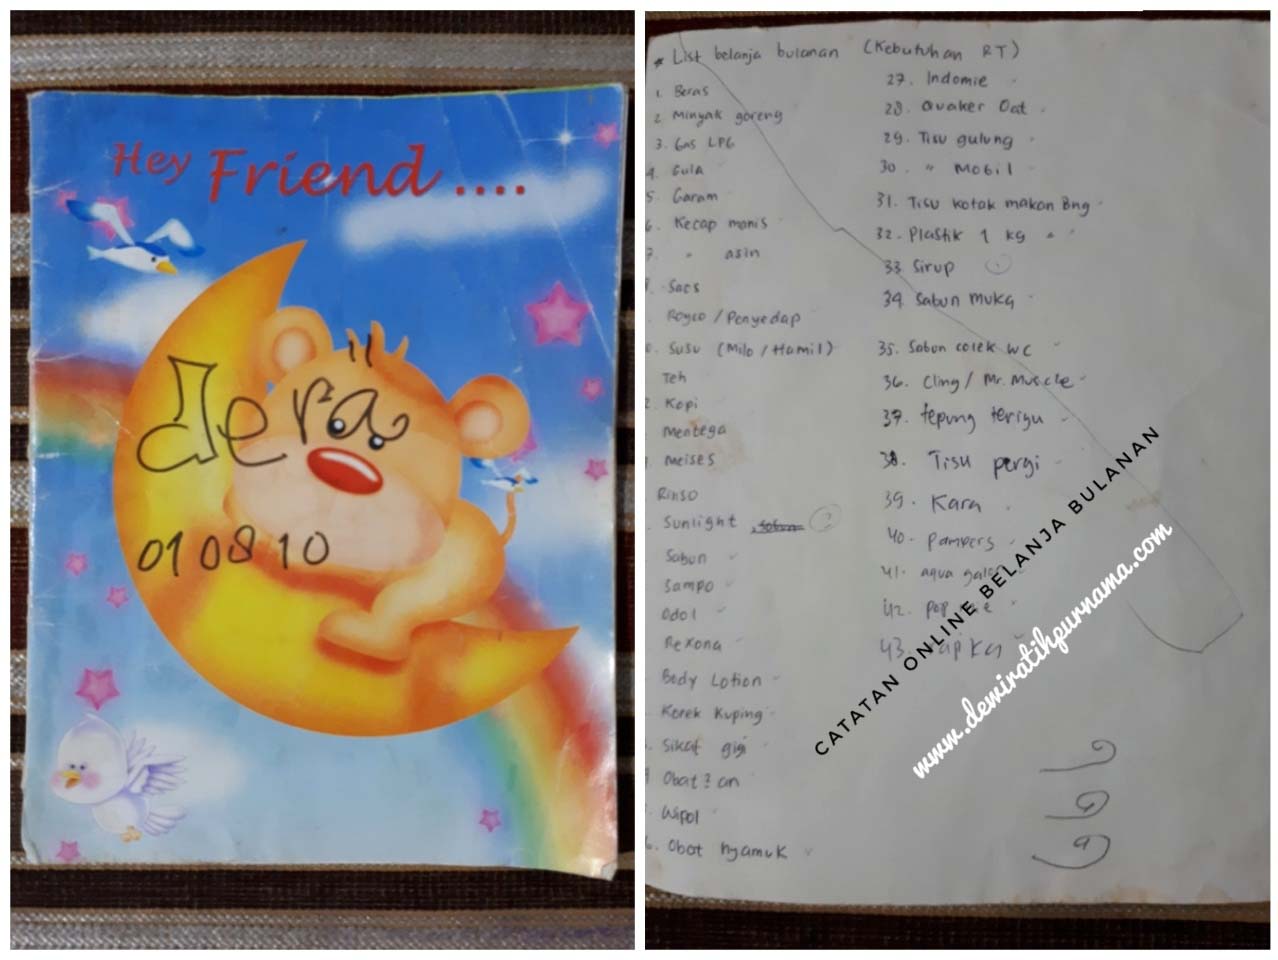 Hey Friend ....
dera
010810
* List belanja bulanan (Kebutuhan RT)
1. Beras
2. Minyak goreng
3. Gas LPG
4. Gula
5. Garam
6. Kecap manis
7. " asin
Saos
Royco / Penyedap
Susu (Milo / Hamil)
Teh
2. Kopi
Mentega
Meises
Rinso
Sunlight sabun ?
Sabun
Sampo
Odol
Rexona
Body Lotion
Korek Kuping
Sikat gigi
Obat2an
Wipol
6. Obat nyamuk
27. Indomie
28. Quaker Oat
29. Tisu gulung
30. " Mobil
31. Tisu kotak makan Bng
32. Plastik 1 kg
33. Sirup
34. Sabun Muka
35. Sabun colek WC
36. Cling / Mr. Muscle
37. tepung terigu
38. Tisu pergi
39. Kara
40. pampers
41. aqua galon
42.
43.
CATATAN ONLINE BELANJA BULANAN
www.dewiratihpurnama.com